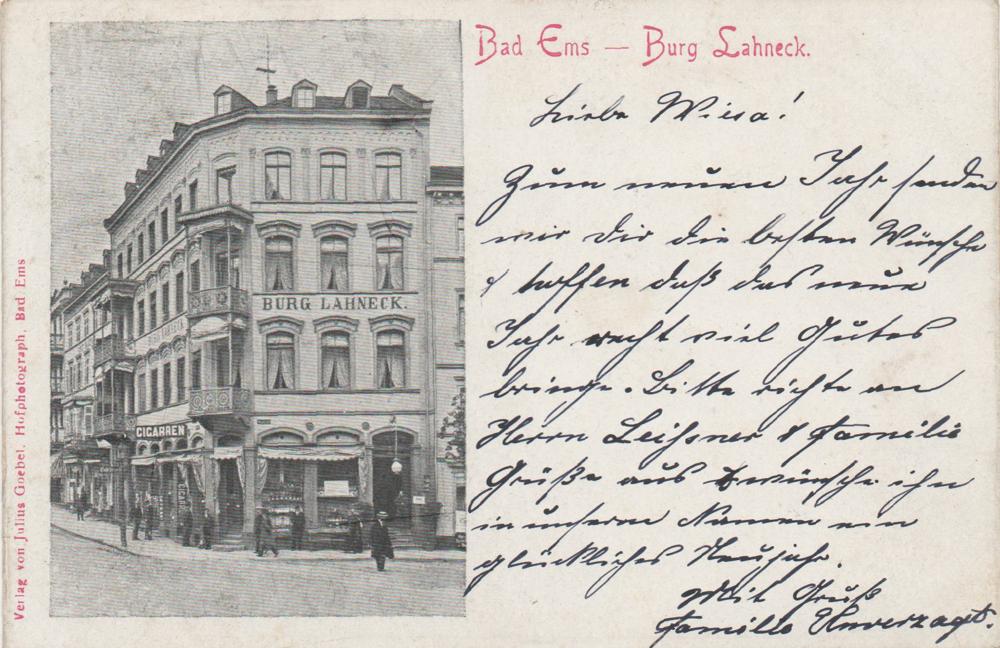 Bad Ems — Burg Lahneck.
Liebe Wiesa!
Zum neuen Jahr senden
wir Dir die besten Wünsche
& hoffen daß das neue
Jahr recht viel Gutes
bringe. Bitte richte an
Herrn Leißner & Familie
Grüße aus & wünsche ihm
in unserem Namen ein
glückliches Neujahr.
Mit Gruß
Familie Unverzagt.
BURG LAHNECK.
CIGARREN
Verlag von Julius Goebel, Hofphotograph, Bad Ems